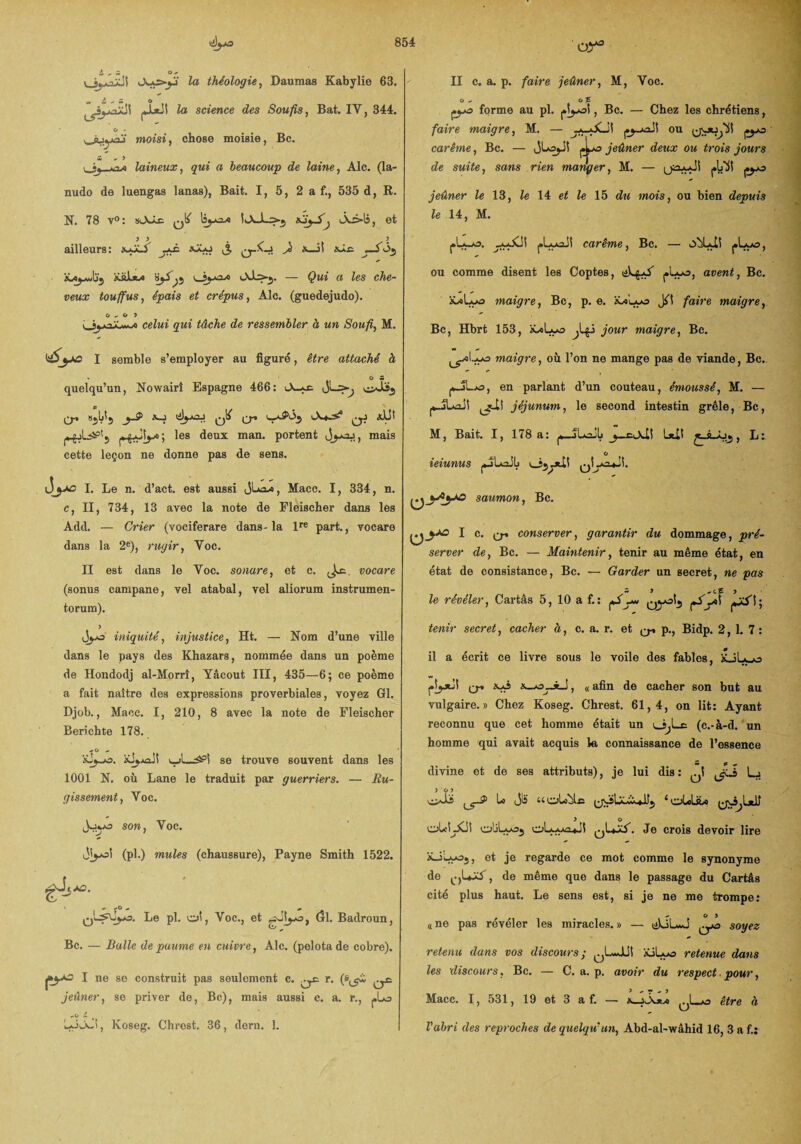 صوك 854 صون
توحيد التصوّف la théologie, Daumas Kabylie 63.
علم التصوّفي la science des Soufis, Bat. IV, 344.
moisi, chose moisie, Bc.
laineux, qui a beaucoup de laine, Alc. (la-
nudo de luengas lanas), Bait. I, 5, 2 a f., 535 d, R.
N. 78 v°: et
ailleurs:
— Qui a les che-
veux touffus, épais et crépus, Alc. (guedejudo).
celui qui tâche de ressembler à un Soufi, M.
صوك I semble s'employer au figuré, être attaché à
quelqu'un, Nowairî Espagne 466:
les deux man. portent يصول, mais
cette leçon ne donne pas de sens.
صول I. Le n. d'act. est aussi مصال, Macc. I, 334, n.
c, II, 734, 13 avec la note de Fleischer dans les
Add. — Crier (vociferare dans la 1re part., vocare
dans la 2e), rugir, Voc.
II est dans le Voc. sonare, et c. على vocare
(sonus campane, vel atabal, vel aliorum instrumen-
torum).
صول iniquité, injustice, Ht. — Nom d'une ville
dans le pays des Khazars, nommée dans un poème
de Hondodj al-Morrî, Yâcout III, 435—6; ce poème
a fait naître des expressions proverbiales, voyez Gl.
Djob., Macc. I, 210, 8 avec la note de Fleischer
Berichte 178.
صولة. اصحاب الصولة se trouve souvent dans les
1001 N. où Lane le traduit par guerriers. — Ru-
gissement, Voc.
صويل son, Voc.
اصوال (pl.) mules (chaussure), Payne Smith 1522.
صولج.
صولجان. Le pl. ات, Voc., et صوالج, Gl. Badroun,
Bc. — Balle de paume en cuivre, Alc. (pelota de cobre).
صوم I ne se construit pas seulement c. عن r. (شىء عن
jeûner, se priver de, Bc), mais aussi c. a. r., صام
Koseg. Chrest. 36, dern. l.
II c. a. p. faire jeûner, M, Voc.
صوم forme au pl. اصوام, Bc. — Chez les chrétiens,
faire maigre, M. — الصوم الكبير ou صوم الاربعين
carême, Bc. — صوم الوصال jeûner deux ou trois jours
de suite, sans rien manger, M. — صوم الايام البيض
jeûner le 13, le 14 et le 15 du mois, ou bien depuis
le 14, M.
صيام. الصيام الكبير carême, Bc. — صيام الميلاد,
ou comme disent les Coptes, صيام كيهك, avent, Bc.
صيامة maigre, Bc, p. e. اكل صيامة faire maigre,
Bc, Hbrt 153, نهار صيامة jour maigre, Bc.
صيامي maigre, où l'on ne mange pas de viande, Bc.
صائم, en parlant d'un couteau, émoussé, M. —
المعى الصائم jéjunum, le second intestin grêle, Bc,
M, Bait. I, 178 a: وينقى المعا المدعو بالصائم, L:
ieiunus المصران المعروف بالصائم.
صومون saumon, Bc.
صون I c. من conserver, garantir du dommage, pré-
server de, Bc. — Maintenir, tenir au même état, en
état de consistance, Bc. — Garder un secret, ne pas
le révéler, Cartâs 5, 10 a f.: اكتم امركم واصون سركم;
tenir secret, cacher à, c. a. r. et من p., Bidp. 2, l. 7:
il a écrit ce livre sous le voile des fables, صيانة
لغرضه فيه من العوام, «afin de cacher son but au
vulgaire.» Chez Koseg. Chrest. 61, 4, on lit: Ayant
reconnu que cet homme était un عارف (c.-à-d. un
homme qui avait acquis la connaissance de l'essence
divine et de ses attributs), je lui dis:
Je crois devoir lire
وصيانة, et je regarde ce mot comme le synonyme
de كتمان, de même que dans le passage du Cartâs
cité plus haut. Le sens est, si je ne me trompe:
«ne pas révéler les miracles.» — صن لسانك soyez
retenu dans vos discours; صيانة اللسان retenue dans
les discours, Bc. — C. a. p. avoir du respect pour,
Macc. I, 531, 19 et 3 a f. — être à
l'abri des reproches de quelqu'un, Abd-al-wâhid 16, 3 a f.: